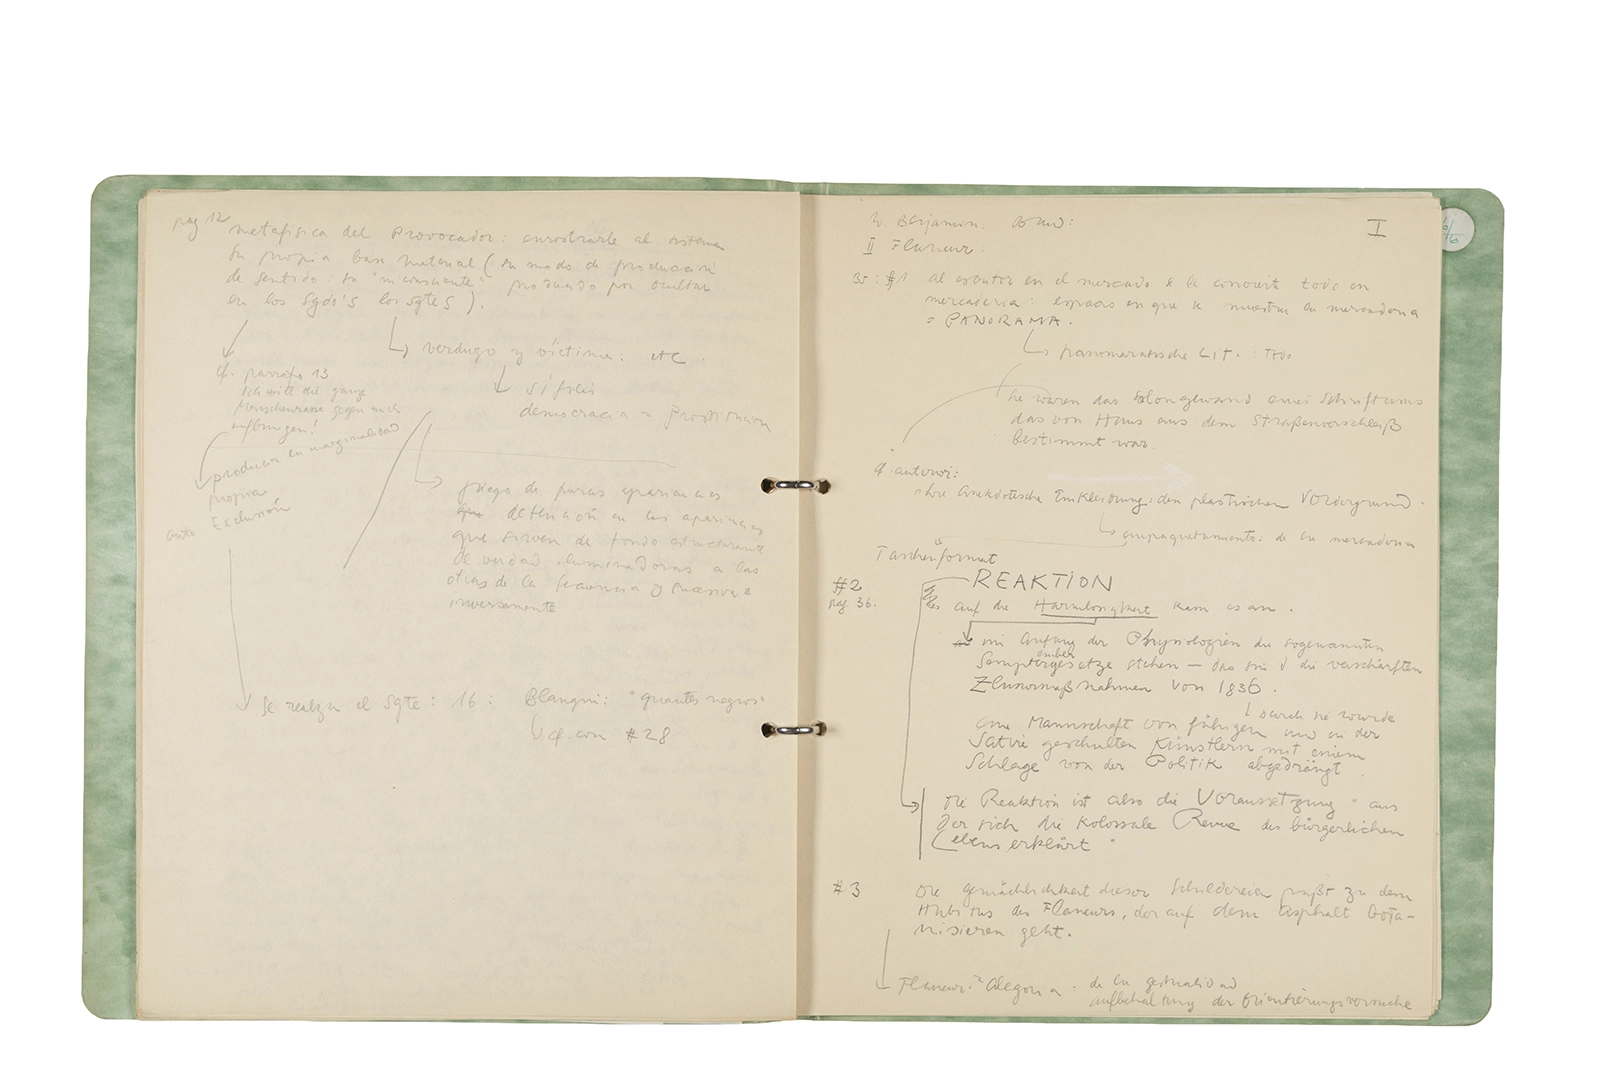 pag 12
metafísica del Provocador: enrostrarle al sistema
su propia base material (su modo de producción
de sentido: su "inconsciente" producido por ocultar
en los Sgdo's los sgtes).
verdugo y víctima:
cf. parrafo 13
Ich will die ganze
Menschenrasse gegen mich
aufbringen!
sífilis
democracia = Prostitución
producir en marginalidad
propia
auto Exclusión
juego de puras apariencias
detención en las apariencias
que sirven de fondo estructurante
de verdad iluminadoras a las
otras de la secuencia y
inversamente
se realiza el Sgte: 16: Blanqui: "guantes negros"
cf con #28
I
W. Benjamin.
II Flaneur:
35: #1 al escritor en el mercado se le convierte todo en
mercadería: espacio en que se muestra la mercadería
= PANORAMA.
panoramatische Lit.: todo
Sie waren das Salongewand eines Schrifttums
das von Haus aus dem Straßenverschleiß
bestimmt war
cf. anterior:
ihre anekdotische Einkleidung: den plastischen Vordergrund.
empaquetamiento: de la mercadería
Taschenformat
#2
pag. 36.
REAKTION
auf die Harmlosigkeit kam es an.
im Anfang der Physiologien die sogenannten
Septembergesetze stehen — das sind die verschärften
Zensurmaßnahmen von 1836.
Durch sie wurde
eine Mannschaft von fähigen und in der
Satire geschulten Künstlern mit einem
Schlage von der Politik abgedrängt
die Reaktion ist also die Voraussetzung "aus
der sich die kolossale Revue des bürgerlichen
Lebens erklärt"
#3
Die gemächlichkeit dieser Schildereien paßt zu dem
Habitus des Flaneurs, der auf dem Asphalt bota-
nisieren geht.
Flaneur: Alegoria. de la gestualidad
der Orientierungsversuche